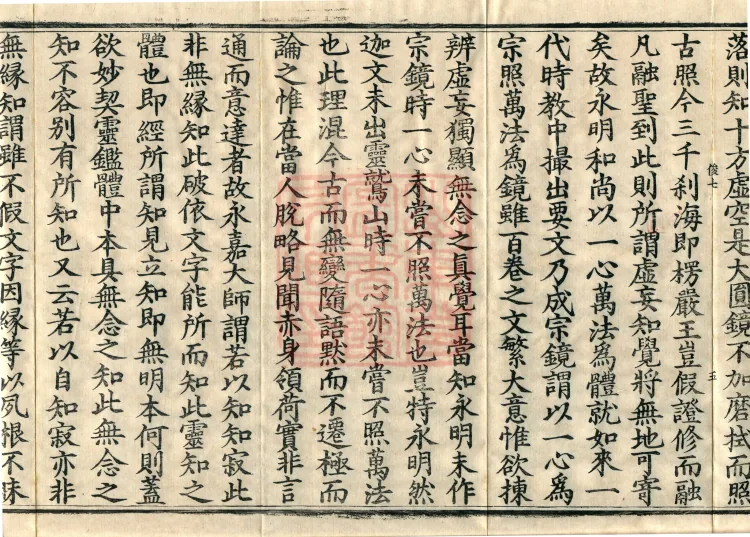 落則知十方虛空是大圓鏡不加磨拭而照
古照今三千刹海即楞嚴王豈假證修而融
凡融聖到此則所謂虛妄知覺將無地可寄
矣故永明和尚以一心萬法爲體就如來一
代時教中撮出要文乃成宗鏡謂以一心爲
宗照萬法爲鏡雖百卷之文繁大意惟欲揀
俊七
五
辨虛妄獨顯無念之眞覺耳當知永明未作
宗鏡時一心未嘗不照萬法也豈特永明然
迦文未出靈鷲山時一心亦未嘗不照萬法
也此理混今古而無變隨語默而不遷極而
論之惟在當人脫略見聞赤身領荷實非言
通而意達者故永嘉大師謂若以知知寂此
非無緣知此破依文字能所而知此靈知之
體也即經所謂知見立知即無明本何則蓋
欲妙契靈鑑體中本具無念之知此無念之
知不容別有所知也又云若以自知寂亦非
無緣知謂雖不假文字因緣等以夙根不昧